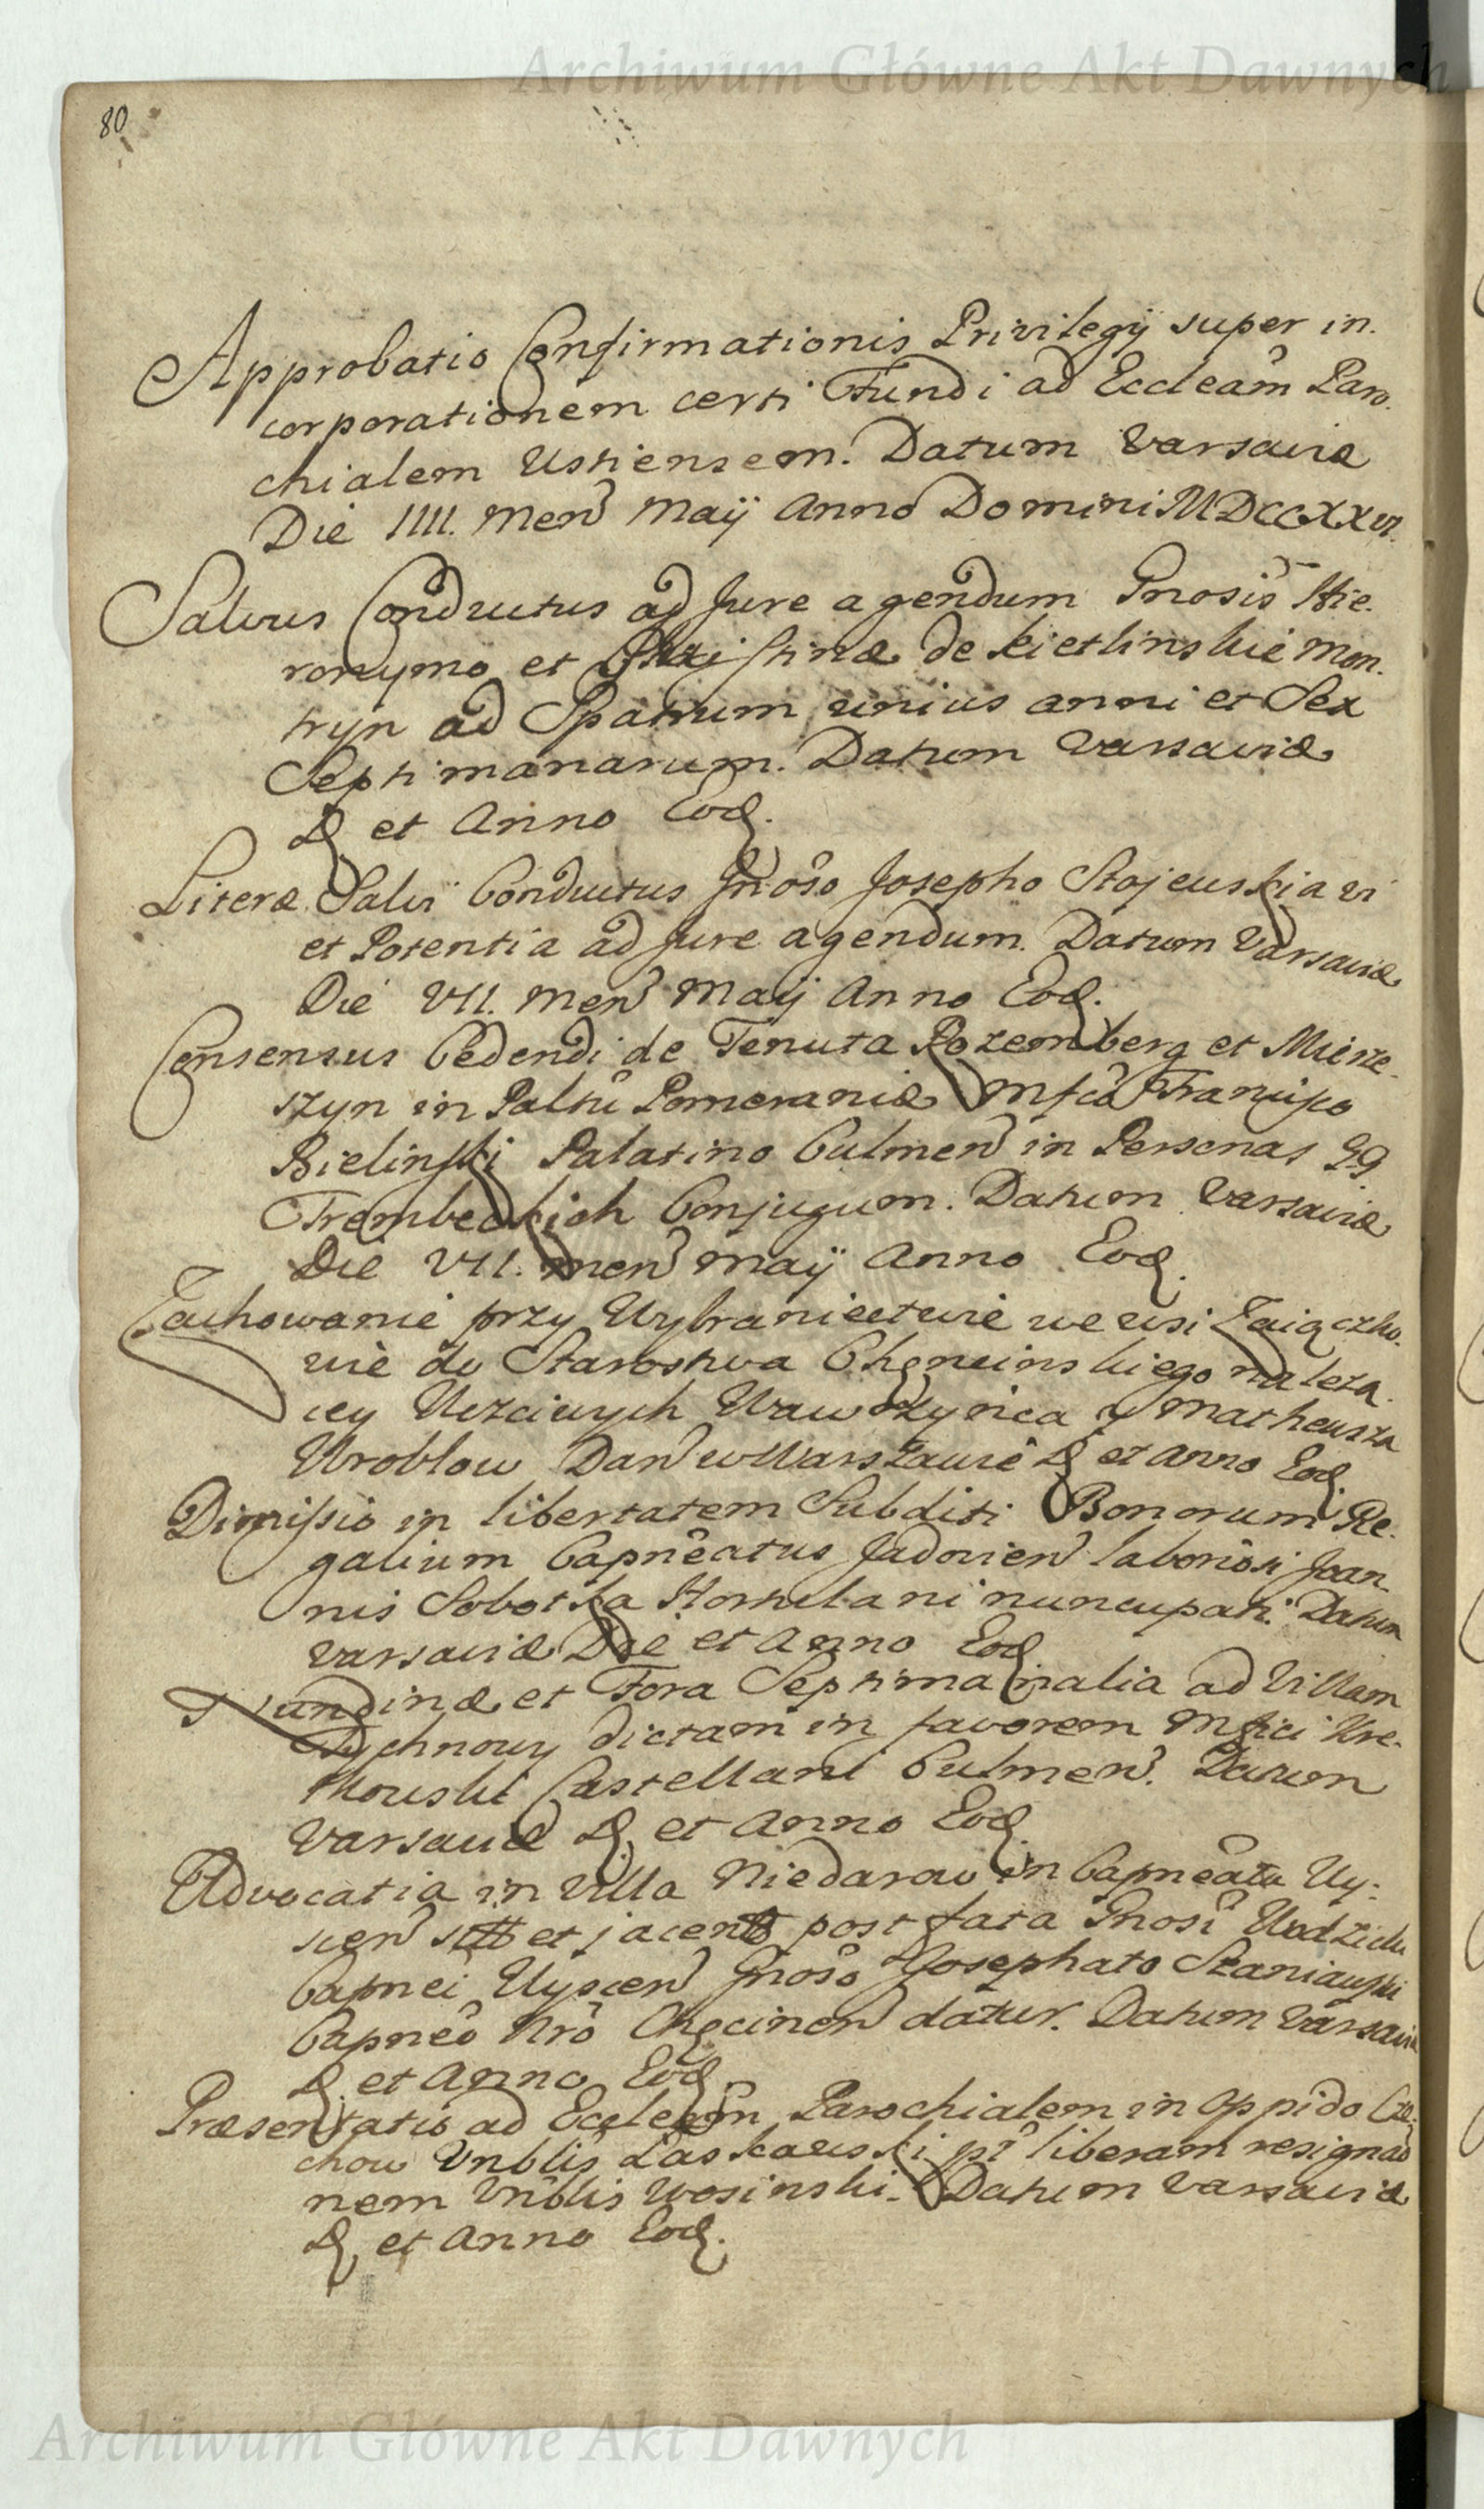 Archiwum Główne Akt Dawnych
80
Approbatio Confirmationis Privilegÿ super in.
corporationem certi Fundi ad Eccleam Paro.
chialem Ustiensem. Datum Varsaviæ
Die IIII. Men Maÿ Anno Domini MDCCXXVI.
Salvus Conductus ad Jure agendum Gnosis Hie.
ronymo et Christinæ de Kietlinskie Mon.
tryn ad Spatium unius anni et Sex
Septimanarum. Datum Varsaviæ
D. et Anno Eod.
Literæ Salvi Conductus Gnoso Josepho Stojeuski a vi
et Potentia ad Jure agendum. Datum Varsaviæ
Die VII. Men Maÿ Anno Eod.
Consensus Cedendi de Tenuta Rozemberg et Miesze.
szyn in Paltu Pomeraniæ Mfco Francisco
Bielinski Palatino Culmen in Personas GG
Trembeckich Conjugum. Datum Varsaviæ
Die VII. Men Maÿ Anno Eod.
Zachowanie przy Wybraniectwie we wsi Zaiączko.
wie do Starostwa Chęncinskiego należą.
cey Uczciwych Wawrzyńca y Matheusza
Wroblow Dan w Warszawie D. et Anno Eod.
Dimissio in libertatem Subditi Bonorum Re.
galium Capneatus Jadovien laboriosi Joan.
nis Sobotka nuncupati. Datum
Varsaviæ Die et Anno Eod
Nundinæ et Fora Septimanalia ad Villam
Rychnowy dictam in favorem Mfici Kre.
tkowski Castellani Culmen. Datum
Varsaviæ D. et Anno Eod.
Advocatia in Villa Niedarow in Capneatu Uy.
scen sitt et jacent post fata Gnosi Wodzicki
Capnei Uyscen Gnoso Josephato Staniawski
Capneo Nro Chęcinen datur. Datum Varsaviæ
D. et Anno Eod.
Præsentatio ad Eccleam Parochialem in Oppido Cze.
chow Vnblis Laskawski pt liberam resignao
nem Vnblis Wosinski. Datum Varsaviæ
D. et Anno Eod.
Archiwum Główne Akt Dawnych